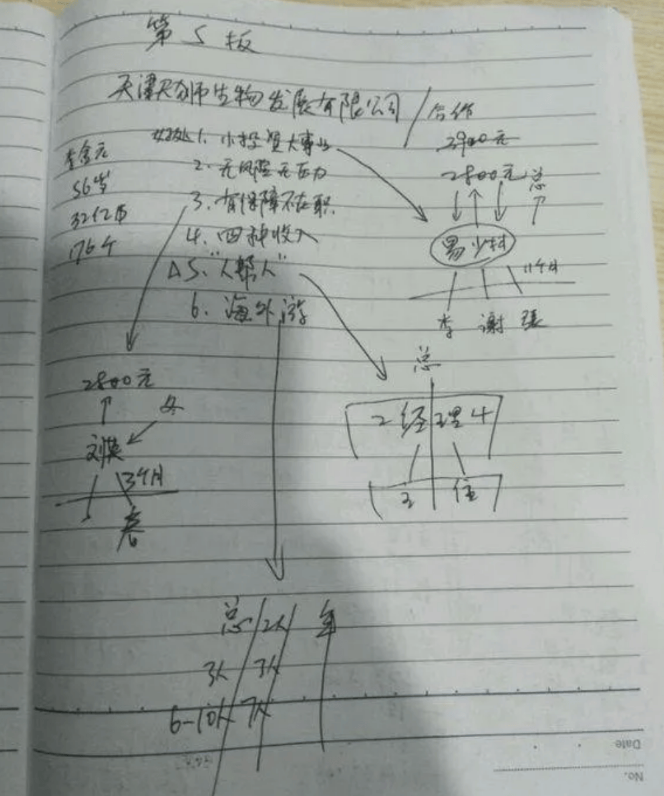 第5板
天津天狮生物发展有限公司/合作
好处 1. 小投资大事业
2. 无风险无压力
3. 有保障不在职
4. 四种收入
△5. "人帮人"
6. 海外游
李金元
56岁
32亿
176个
3900元
2800元 总
易
11个月
李 谢 张
2800元
女
刘英
3个月
老
总
2经理4
主 任
总 2人 年
3人 7人
6-10人 7人
Date
No.